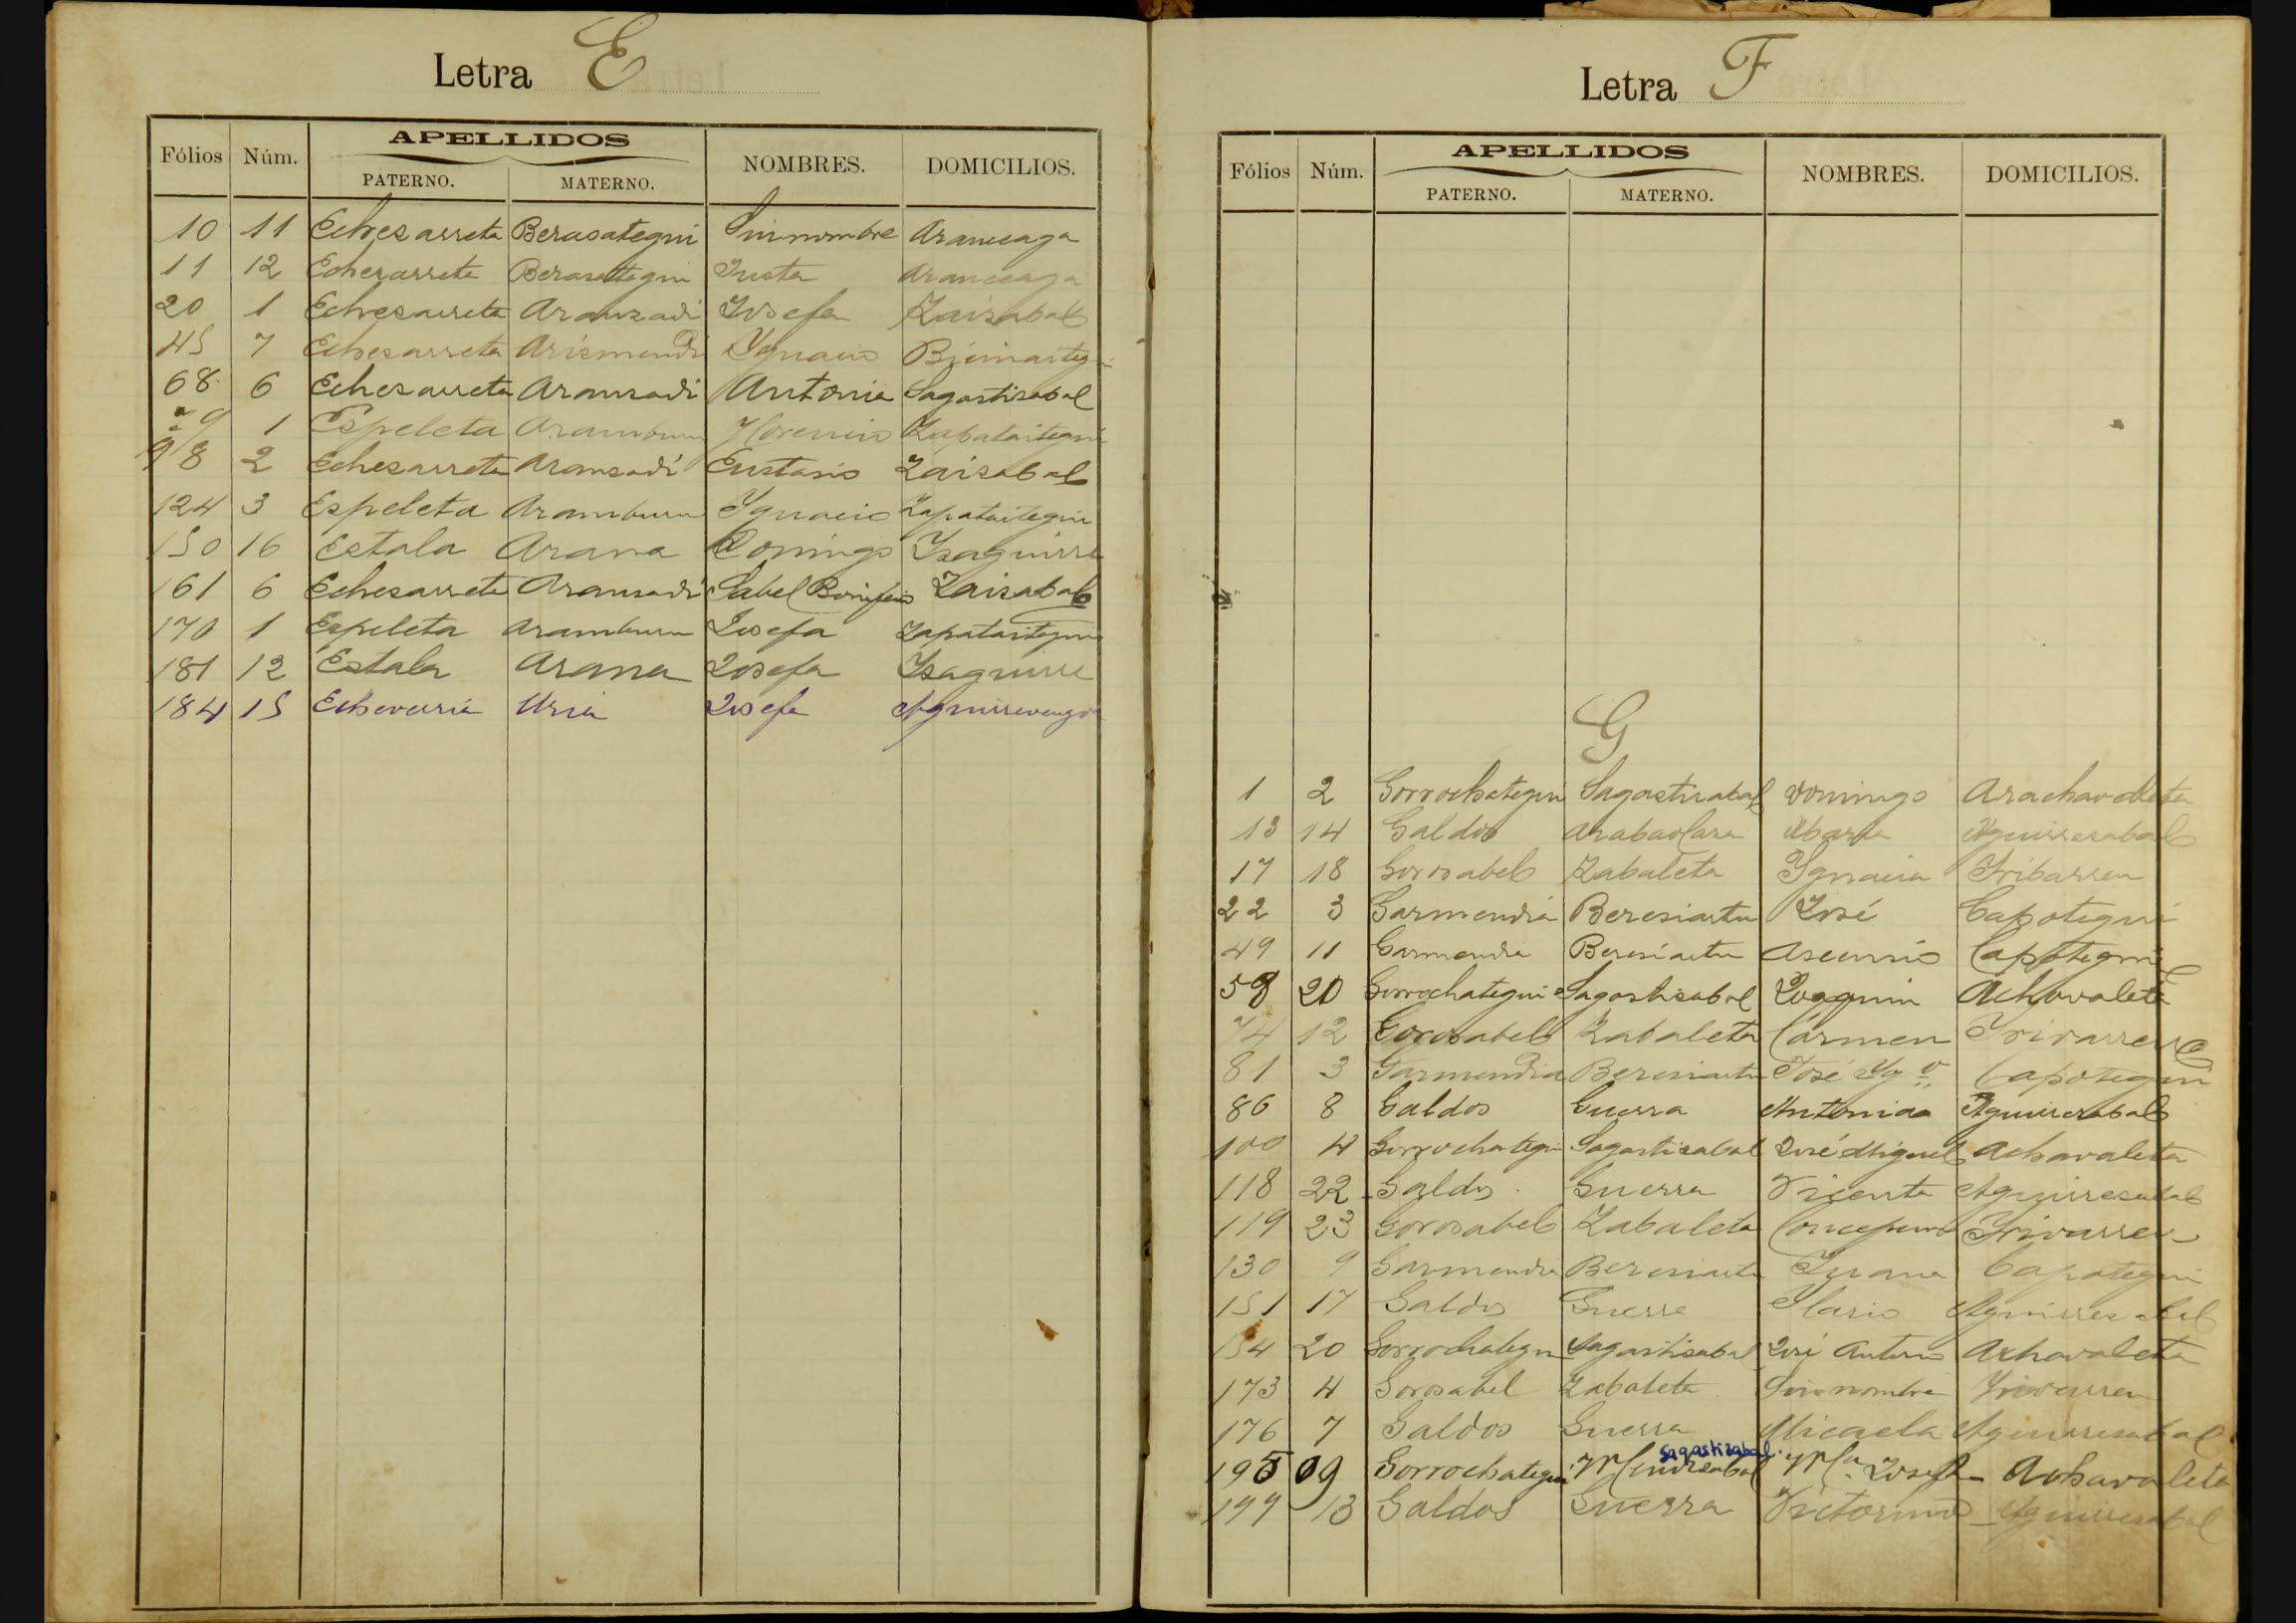 Letra E
Fólios Núm. APELLIDOS NOMBRES. DOMICILIOS.
PATERNO. MATERNO.
10 11 Echesarreta Berasategui Sin nombre Aranceaga
11 12 Echesarreta Berasategui Justa Aranceaga
20 1 Echesarreta Aransadi Josefa Laisabal
45 7 Echesarreta Arismendi Ygnacio
68 6 Echesarreta Aransadi Antonia Sagastisabal
1 Espeleta Aramburu Florencio Zapataitegui
98 2 Echesarreta Aransadi Eustasio Laisabal
124 3 Espeleta Aramburu Ygnacio Zapataitegui
150 16 Estala Arana Domingo Ysaguirre
161 6 Echesarreta Aransadi Sabel Bonifacio Laisabal
170 1 Espeleta Aramburu Josefa Zapataitegui
181 12 Estala Arana Josefa Ysaguirre
184 15 Echeverria Uria Josefa
Letra F
Fólios Núm. APELLIDOS NOMBRES. DOMICILIOS.
PATERNO. MATERNO.
G
1 2 Gorrochategui Sagastisabal Domingo Arachavaleta
13 14 Galdos Maria Aguirresabal
17 18 Gorosabel Zabaleta Ygnacia Yribarren
22 3 Garmendia Beresiartu José Capotegui
49 11 Garmendia Beresiartu Ascensio Capotegui
58 20 Gorrochategui Sagastisabal Joaquin Achavaleta
74 12 Gorosabel Zabaleta Carmen Yrivarren
81 3 Garmendia Beresiartu José Ygº Capotegui
86 8 Galdos Guerra Antonia Aguirresabal
100 4 Gorrochategui Sagastisabal José Miguel Achavaleta
118 22 Galdos Guerra Vicenta Aguirresabal
119 23 Gorosabel Zabaleta Concepcion Yrivarren
130 9 Garmendia Beresiartu Juana Capotegui
151 17 Galdos Guerra Ylario Aguirresabal
154 20 Gorrochategui Sagastisabal José Antonio Achavaleta
173 4 Gorosabel Zabaleta Sin nombre Yrivarren
176 7 Galdos Guerra Micaela Aguirresabal
Sagastizabal.
195 09 Gorrochategui Mendisabal Mª Josefa Achavaleta
199 13 Galdos Guerra Victorino Aguirresabal